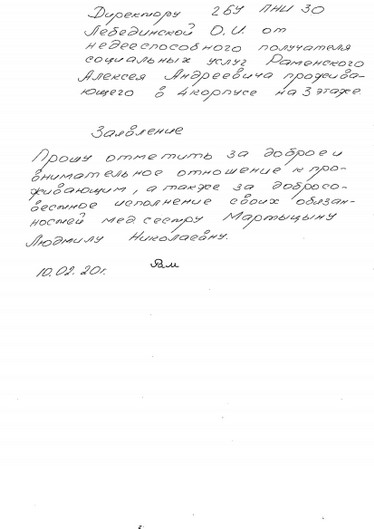 Директору ГБУ ПНИ 30
Лебединской О.И. от
недееспособного получателя
социальных услуг Раменского
Алексея Андреевича прожива-
ющего в 4 корпусе на 3 этаже.
Заявление
Прошу отметить за доброе и
внимательное отношение к про-
живающим, а также за добросо-
вестное исполнение своих обязан-
ностей мед. сестру Мартыцыну
Людмилу Николаевну.
10.02.20г. Рам